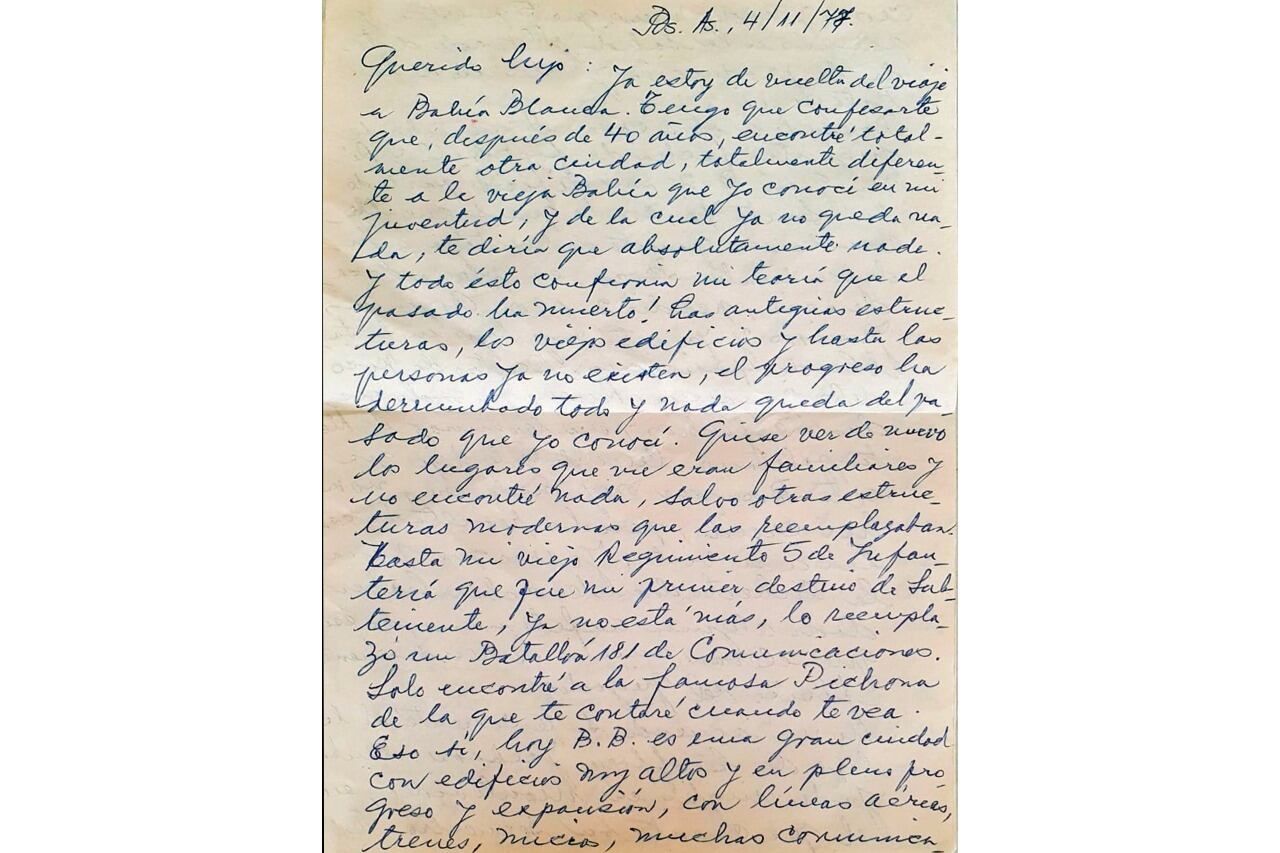 Bs. As., 4/11/77.
Querido hijo: Ya estoy de vuelta del viaje
a Bahía Blanca. Tengo que confesarte
que, después de 40 años, encontré total-
mente otra ciudad, totalmente diferen-
te a la vieja Bahía que yo conocí en mi
juventud, y de la cual ya no queda na-
da, te diría que absolutamente nada.
Y todo ésto confirma mi teoría que el
pasado ha muerto! Las antiguas estruc-
turas, los viejos edificios y hasta las
personas ya no existen, el progreso ha
derrumbado todo y nada queda del pa-
sado que yo conocí. Quise ver de nuevo
los lugares que me eran familiares y
no encontré nada, salvo otras estruc-
turas modernas que las reemplazaban.
Hasta mi viejo Regimiento 5 de Infan-
tería que fue mi primer destino de Sub-
teniente, ya no está más, lo reempla-
zó un Batallón 181 de Comunicaciones.
Solo encontré a la famosa Pichona
de la que te contaré cuando te vea.
Eso sí, hoy B.B. es una gran ciudad
con edificios muy altos y en pleno pro
greso y expansión, con líneas aéreas,
trenes, micros, muchas comunica-